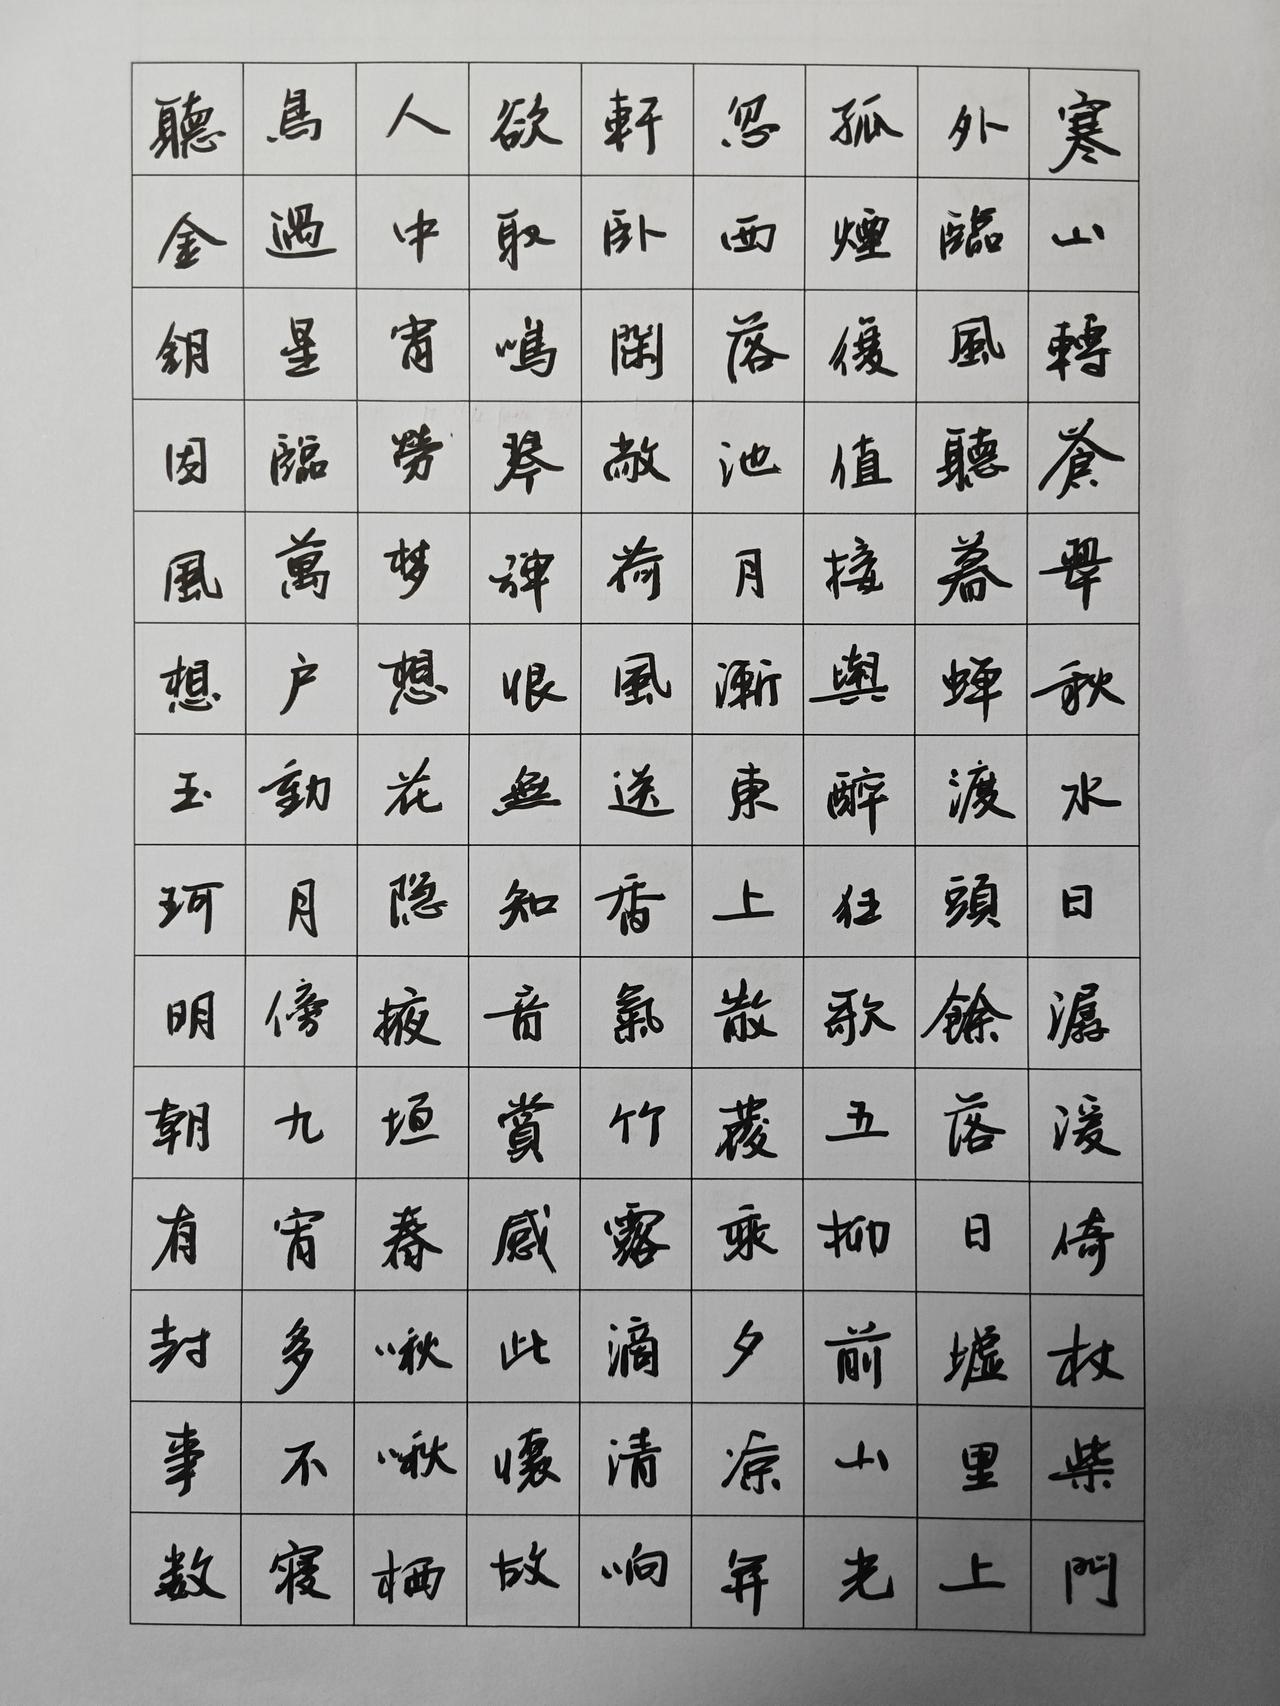 寒山轉蒼翠秋水日潺湲倚杖柴門
外臨風聽暮蝉渡頭餘落日墟里上
孤煙復值接輿醉狂歌五柳前山光
忽西落池月漸東上散髮乘夕凉開
軒卧閑敞荷風送香氣竹露滴清响
欲取鳴琴弹恨無知音賞感此懷故
人中宵勞梦想花隐掖垣春啾啾栖
鳥過星臨萬户動月傍九宵多不寢
聽金鈅因風想玉珂明朝有封事数